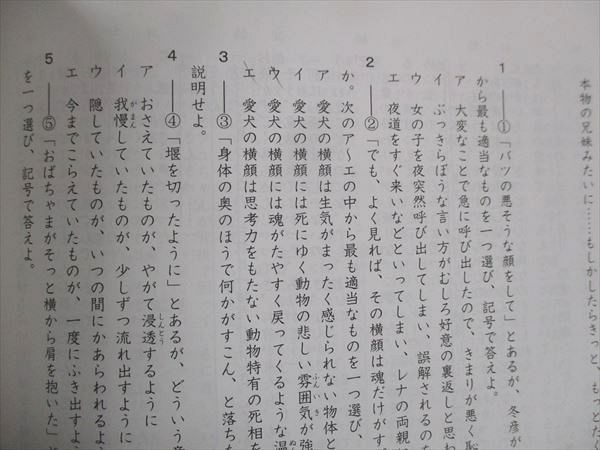 本物の兄妹みたいに……もしかしたらきっと、もっとたく
1 ――①「バツの悪そうな顔をして」とあるが、冬彦が
から最も適当なものを一つ選び、記号で答えよ。
ア 大変なことで急に呼び出したので、きまりが悪く恥
イ ぶっきらぼうな言い方がむしろ好意の裏返しと思わ
ウ 女の子を夜突然呼び出してしまい、誤解されるのを
エ 夜道をすぐ来いなどといってしまい、レナの両親
2 ――②「でも、よく見れば、その横顔は魂だけがす
か。次のア〜エの中から最も適当なものを一つ選び、
ア 愛犬の横顔は生気がまったく感じられない物体と
イ 愛犬の横顔には死にゆく動物の悲しい雰囲気が強
ふんいき
ウ 愛犬の横顔には魂がたやすく戻ってくるような温
ぬく
エ 愛犬の横顔は思考力をもたない動物特有の死相を
3 ――③「身体の奥のほうで何かがすこん、と落ちた
説明せよ。
4 ――④「堰を切ったように」とあるが、どういう意
ア おさえていたものが、やがて浸透するように
しんとう
イ 我慢していたものが、少しずつ流れ出すように
がまん
ウ 隠していたものが、いつの間にかあらわれるよ
エ 今までこらえていたものが、一度にふき出すよ
5 ――⑤「おばちゃまがそっと横から肩を抱いた」と
を一つ選び、記号で答えよ。